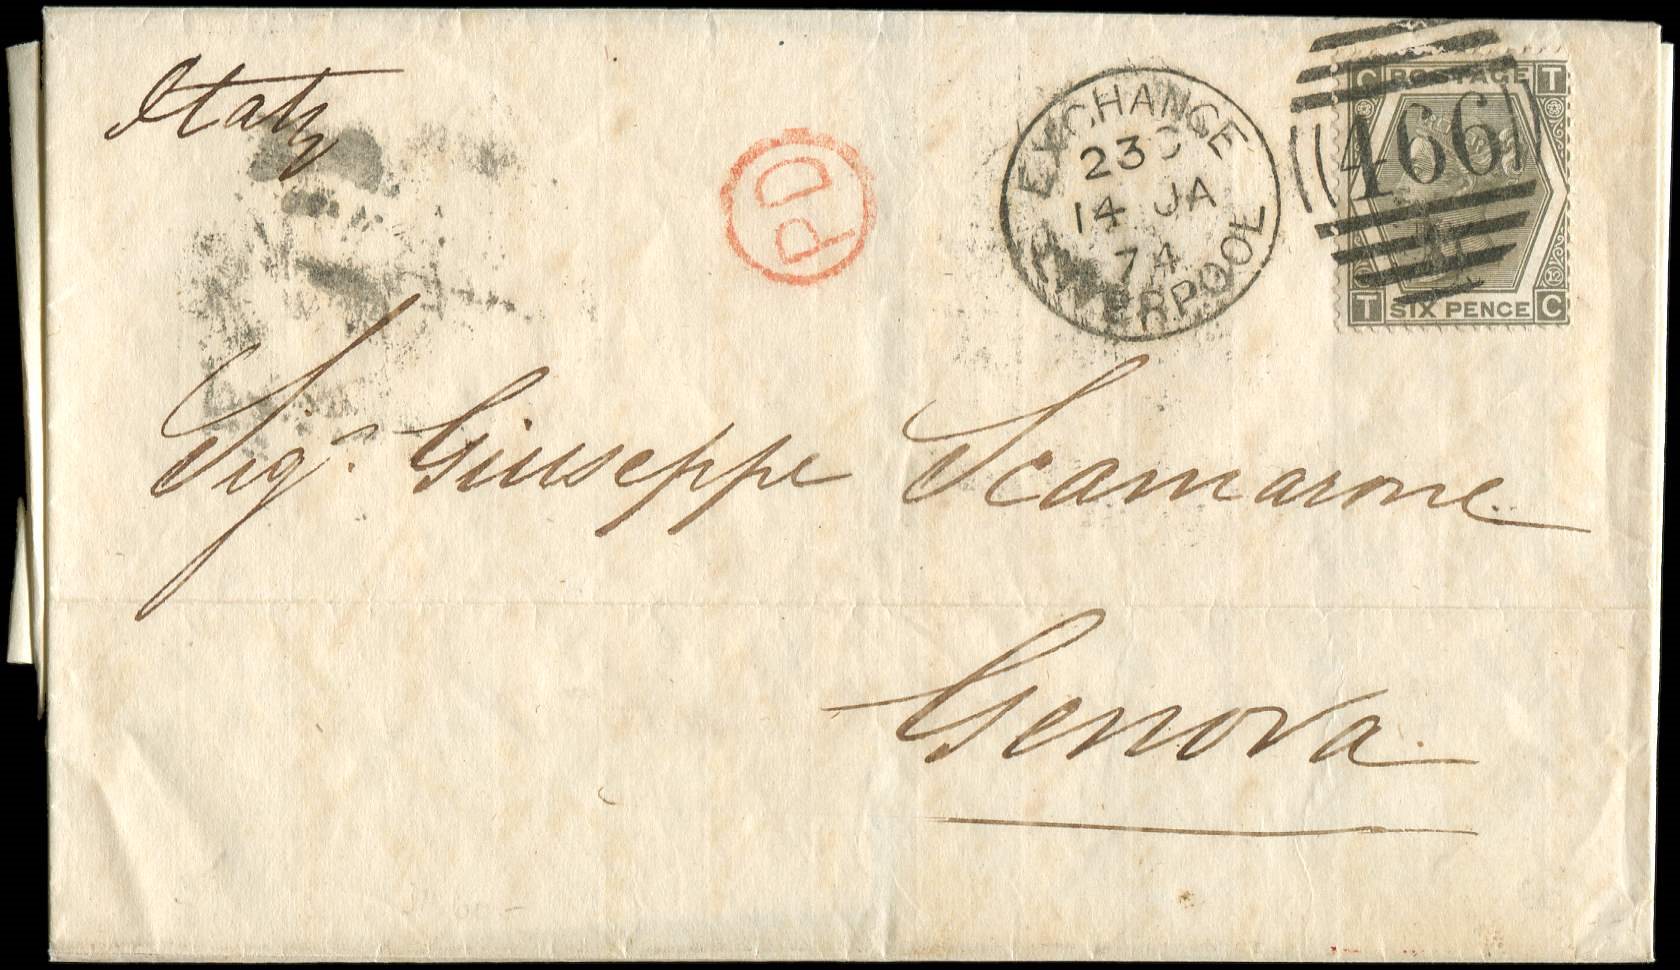 Italy
PD
EXCHANGE
23
14 JA
74
LIVERPOOL
466
C POSTAGE T
T SIX PENCE C
Sigr. Giuseppe Scamarone
Genova